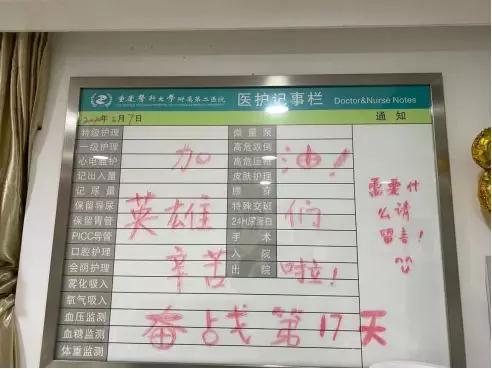 重慶醫科大學附属第二医院
医护记事栏 Doctor&Nurse Notes
2020年2月7日
通知
特级护理
一级护理
心电监护
记出入量
记尿量
保留导尿
保留胃管
PICC导管
口腔护理
会阴护理
雾化吸入
氧气吸入
血压监测
血糖监测
体重监测
微量泵
高危跌倒
高危压疮
皮肤护理
腰穿
特殊交班
24H尿蛋白
手术
入院
出院
加油!
英雄们
辛苦啦!
奋战第17天
需要什
么请
留言!